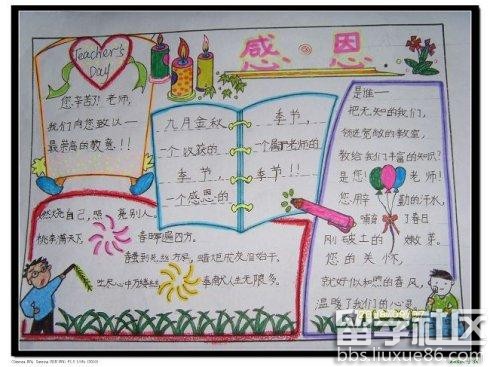 Teacher's
Day
感恩
您辛苦了!老师,
我们向您致以
最崇高的敬意!!
九月金秋
季节,
一个收获的
一个属于老师的
季节,
季节!!
一个感恩的
是谁—
把无知的我们,
领进宽敞的教室,
教给我们丰富的知识?
是您!老师!
您用辛勤的汗水,
哺育了春日
刚破土的嫩芽。
您的关怀,
就好似和煦的春风,
温暖了我们的心灵。
燃烧自己,照亮别人。
桃李满天下,春晖遍四方。
春蚕到死丝方尽,蜡炬成灰泪始干。
奉献人生无限多。
留学社区
bbs.liuxue86.com